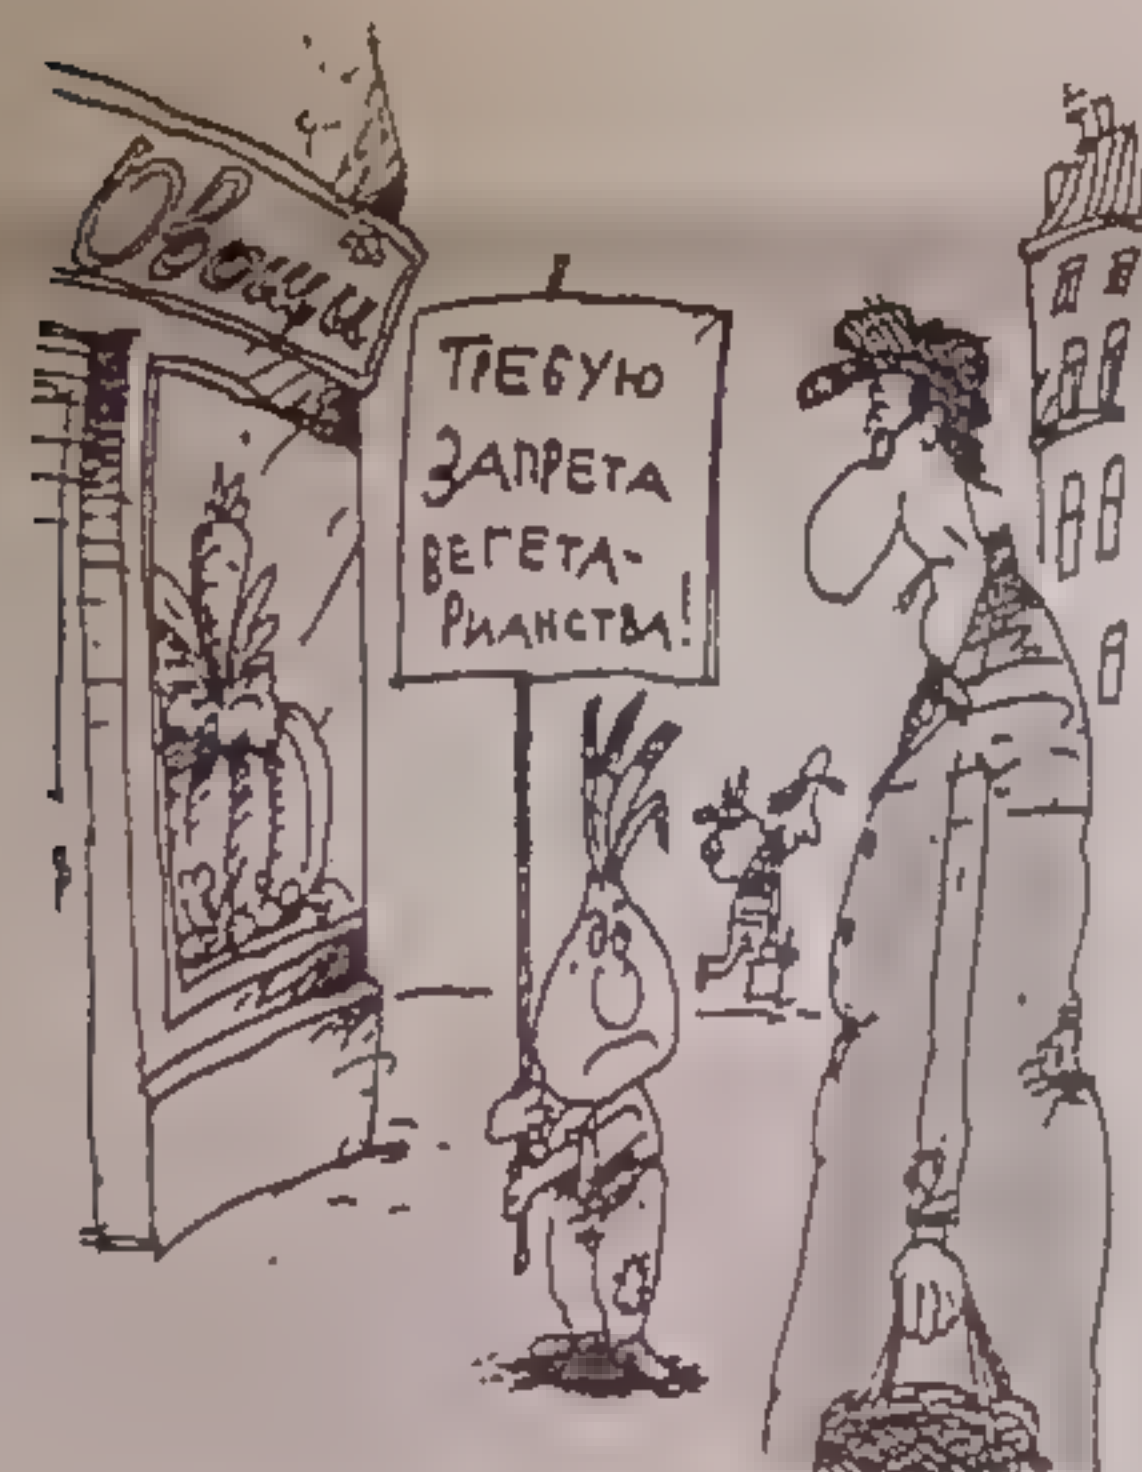 Овощи
ТРЕБУЮ
ЗАПРЕТА
ВЕГЕТА-
РИАНСТВА!